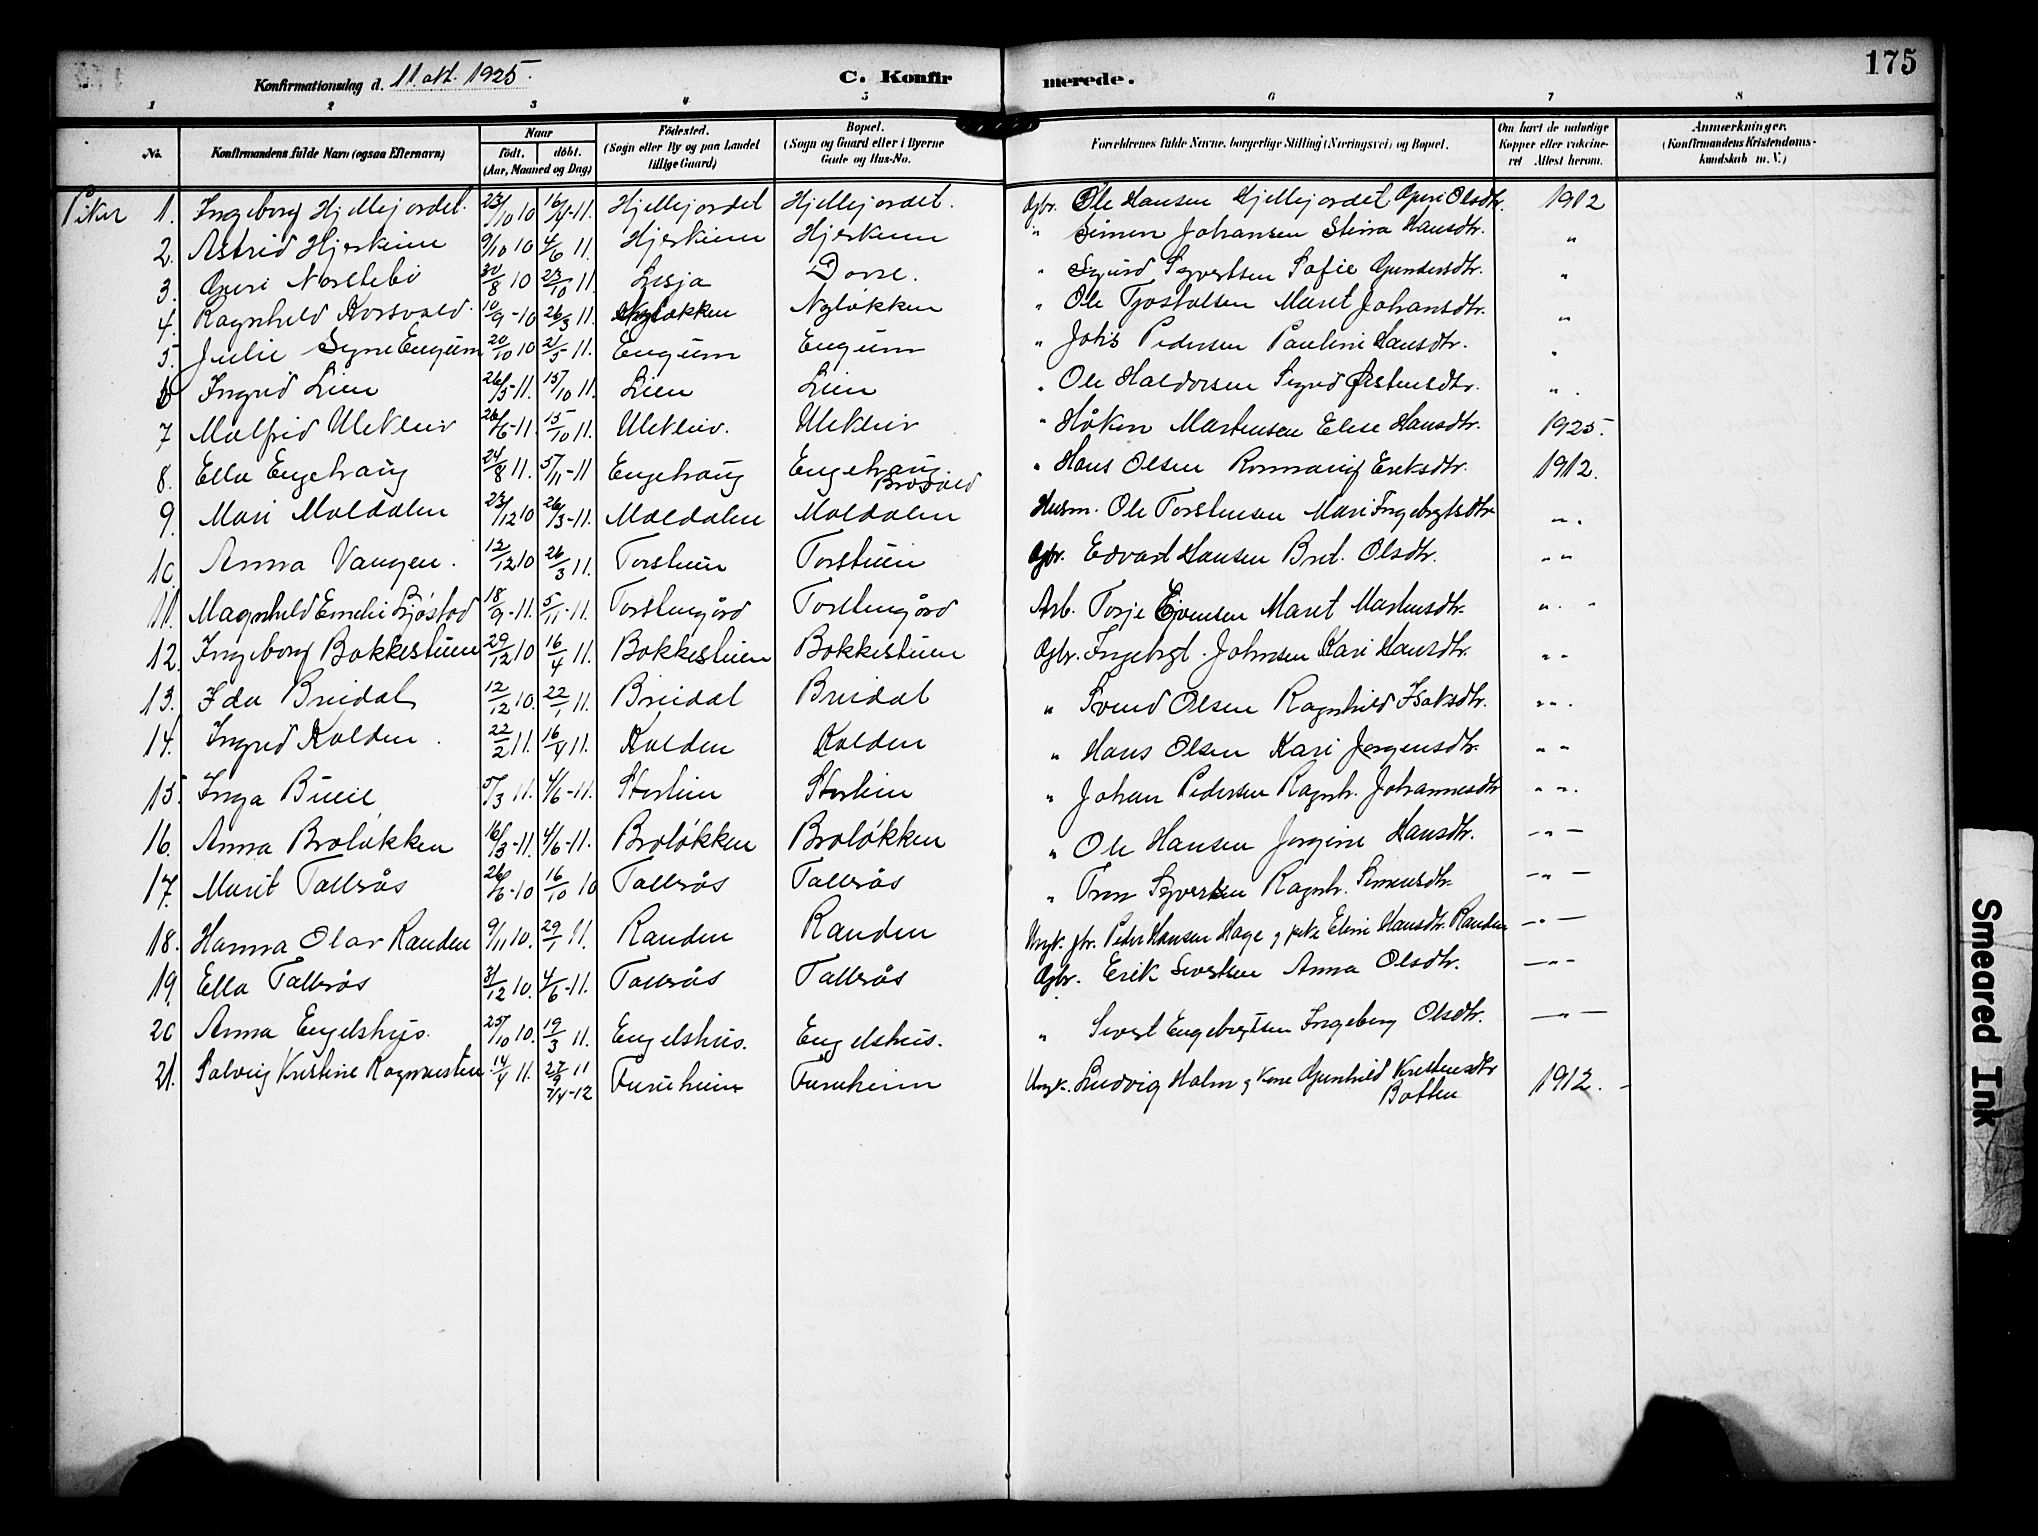 175
Konfirmationsdag d. 11 okt. 1925. C. Konfirmerede.
1 2 3 4 5 6 7 8
No. Konfirmandens fulde Navn (ogsaa Efternavn) Naar født. døbt. (Aar, Maaned og Dag) Fødested. (Sogn eller By og paa Landet tillige Gaard) Bopæl. (Sogn og Gaard eller i Byerne Gade og Hus-No. Forældrenes fulde Navne, borgerlige Stilling (Næringsvei) og Bopæl. Om havt de naturlige Kopper eller vakcineret Attest herom. Anmærkninger. (Konfirmandens Kristendomskundskab m. V.)
Piker 1. Ingeborg Hjellejordet. 23/10 10 16/4-11. Hjellejordet Hjellejordet. Gbr. Ole Hansen Hjellejordet Guri Olsdtr. 1912
2. Astrid Hjerkinn 9/10 10 4/6 11. Hjerkinn Hjerkinn " Simen Johansen Stina Hansdtr. "
3. Guri Norstebø 30/8 10 23/10 11 Lesja Dovre. " Sigurd Syvertsen Sofie Gundersdtr. "
4. Ragnhild 10/9-10 26/3 11. Nyløkken Nyløkken " Ole Tjostolsen Marit Johansdtr. "
5. Julie Signe Engum 20/10 10 21/5 11. Engum Engum " Johs Pedersen Pauline Hansdtr. "
6 Ingrid Lien 26/5-11. 15/10 11. Lien Lien " Ole Haldorsen Sigrid Østensdtr. " .
7 Malfrid Ulekleiv 26/6-11 15/10 11. Ulekleiv. Ulekleiv " Håken Martensen Elise Hansdtr. 1925.
8. Ella Engehaug 24/8 11. 5/11-11 Engehaug Engehaug. " Hans Olsen Eriksdtr. 1912.
9. Mari Moldalen 23/12 10 26/3-11. Moldalen Moldalen Husm. Ole Torstensen Mari Ingebrgtsdtr " .
10. Anna Vangen. 12/12 10 26/3 11. Torstuin Torstuin Gbr. Edvart Hansen Brit. Olsdtr. " "
11. Magnhild Emelie 18/9-11. 5/11-11. Torstengård Torstengård Arb. Torje Eivensen Marit Martensdtr. " . "
12. Ingeborg Bakkestuen 29/12 10 16/4 11. Bakkestuen Bakkestuen Gbr. Ingebrgt. Johnsen Kari Hansdtr. " "
13. Ida Breidal 12/12 10. 22/1 11. Breidal Breidal " Svend Olsen Ragnhild Isaksdtr. " " .
14. Ingrid Kolden. 22/2 11. 16/4 11. Kolden Kolden " Hans Olsen Kari Jørgensdtr. " "
15. Inga Bueie 5/3 11. 4/6-11. Storlien Storlien " Johan Pedersen Ragnh. Johannesdtr " ".
16. Anna Broløkken 16/3-11. 4/6-11. Broløkken Broløkken " Ole Hansen Jørgine Hansdtr. - " -
17. Marit Tallerås 26/6-10 16/10 10 Tallerås Tallerås " Tron Syversen Ragnh. Simensdtr. - " -
18. Hanna Olar Randen 9/11 10. 29/1 11. Randen Randen Ungk. gbr. Peder Hansen Hage & pike Eline Hansdtr. Randen - " -
19. Ella Tallerås 31/12 10. 4/6-11. Tallerås Tallerås Gbr. Erik Sivertsen Anna Olsdtr. - " "
20 Anna Engelshus. 25/10 10. 19/3 11. Engelshus. Engelshus. " Sivert Engebrgtsen Ingeborg Olsdtr. - " -
21. Solveig Kristine 14/4 11. 27/9 11 7/4-12 Furuheim Furuheim Ungk. Ludvig Holm & Kone Gunhild Kristensdtr Botten 1912. -
Smeared Ink